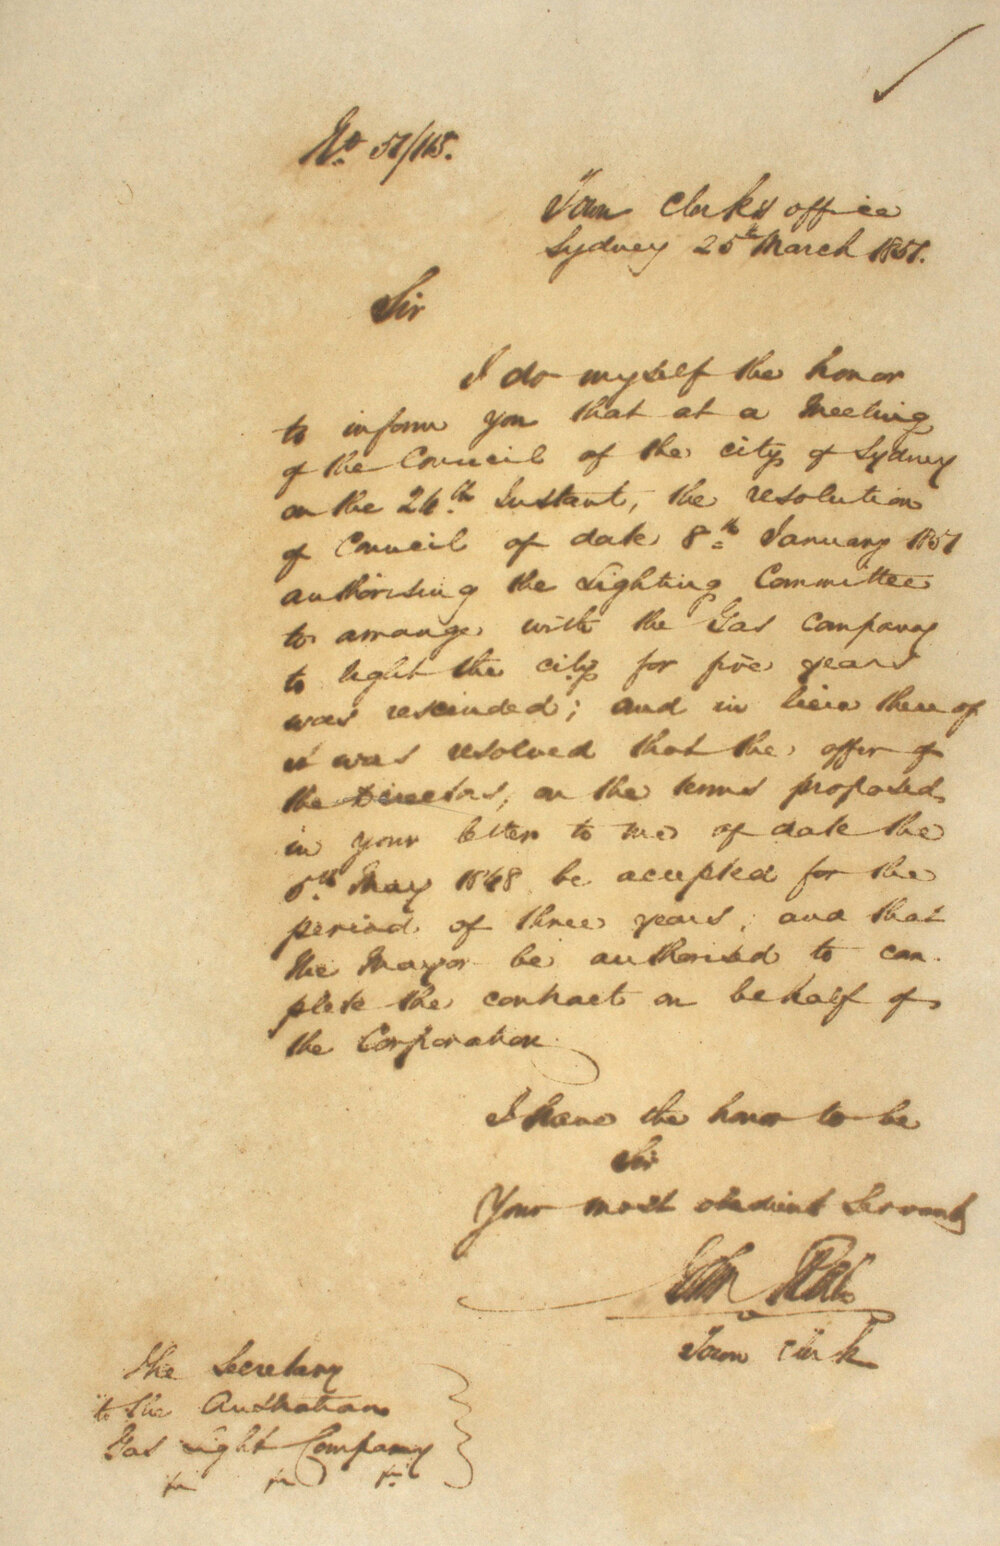 No. 51/115.
Town Clerk's office
Sydney 25th March 1851.
Sir
I do myself the honor
to inform you that at a Meeting
of the Council of the city of Sydney
on the 24th Instant, the resolution
of Council of date 8th January 1851
authorising the Lighting Committee
to arrange with the Gas Company
to light the city for five years
was rescinded; and in lieu there of
it was resolved that the offer of
the Directors, on the terms proposed
in your letter to me of date the
5th May 1848 be accepted for the
period of three years, and that
the Mayor be authorised to com
plete the contract on behalf of
the Corporation
I have the honor to be
Sir
Your most obedient Servant
John
Town Clerk
The Secretary
to the Australian
Gas Light Company